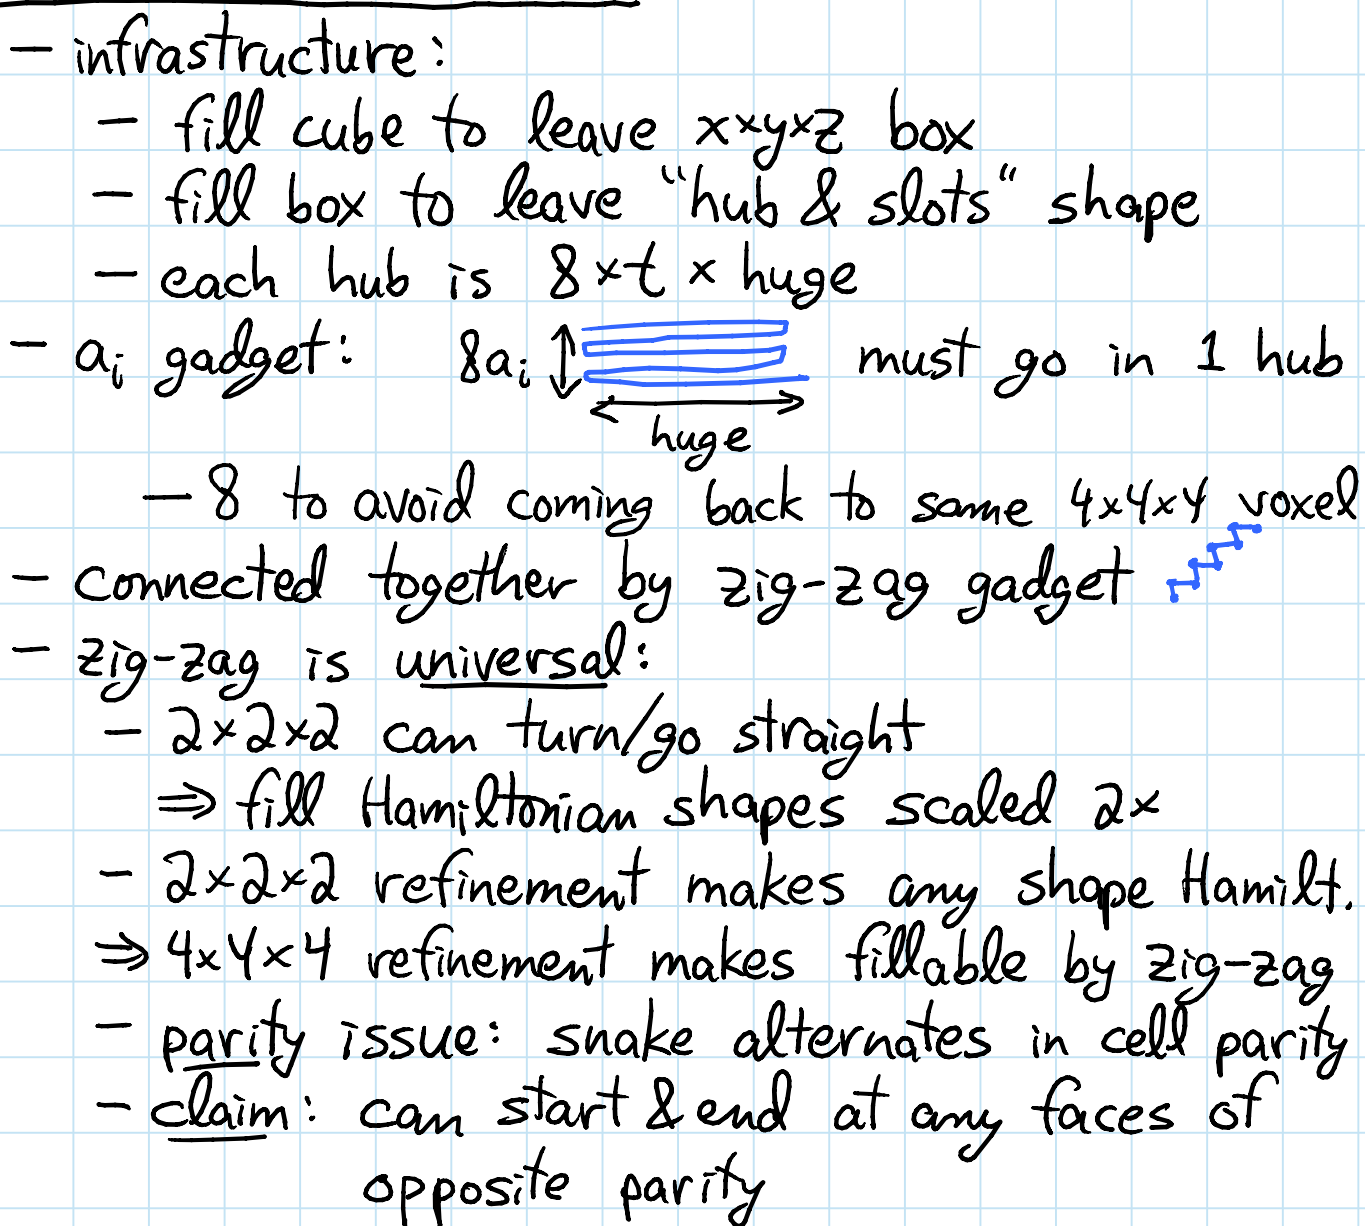 - infrastructure:
- fill cube to leave x×y×z box
- fill box to leave "hub & slots" shape
- each hub is 8×t × huge
- aᵢ gadget: 8aᵢ must go in 1 hub
huge
- 8 to avoid coming back to same 4×4×4 voxel
- connected together by zig-zag gadget
- zig-zag is universal:
- 2×2×2 can turn/go straight
⇒ fill Hamiltonian shapes scaled 2×
- 2×2×2 refinement makes any shape Hamilt.
⇒ 4×4×4 refinement makes fillable by zig-zag
- parity issue: snake alternates in cell parity
- claim: can start & end at any faces of
opposite parity